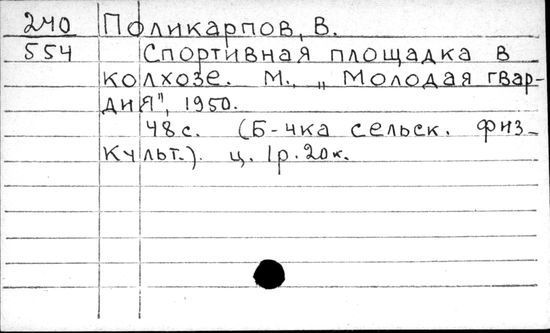 240 Поликарпов, В.
554 Спортивная площадка в
колхозе. М., „Молодая гвар-
дия", 1950.
48с. (Б-чка сельск. физ-
культ.). ц. 1р.20к.